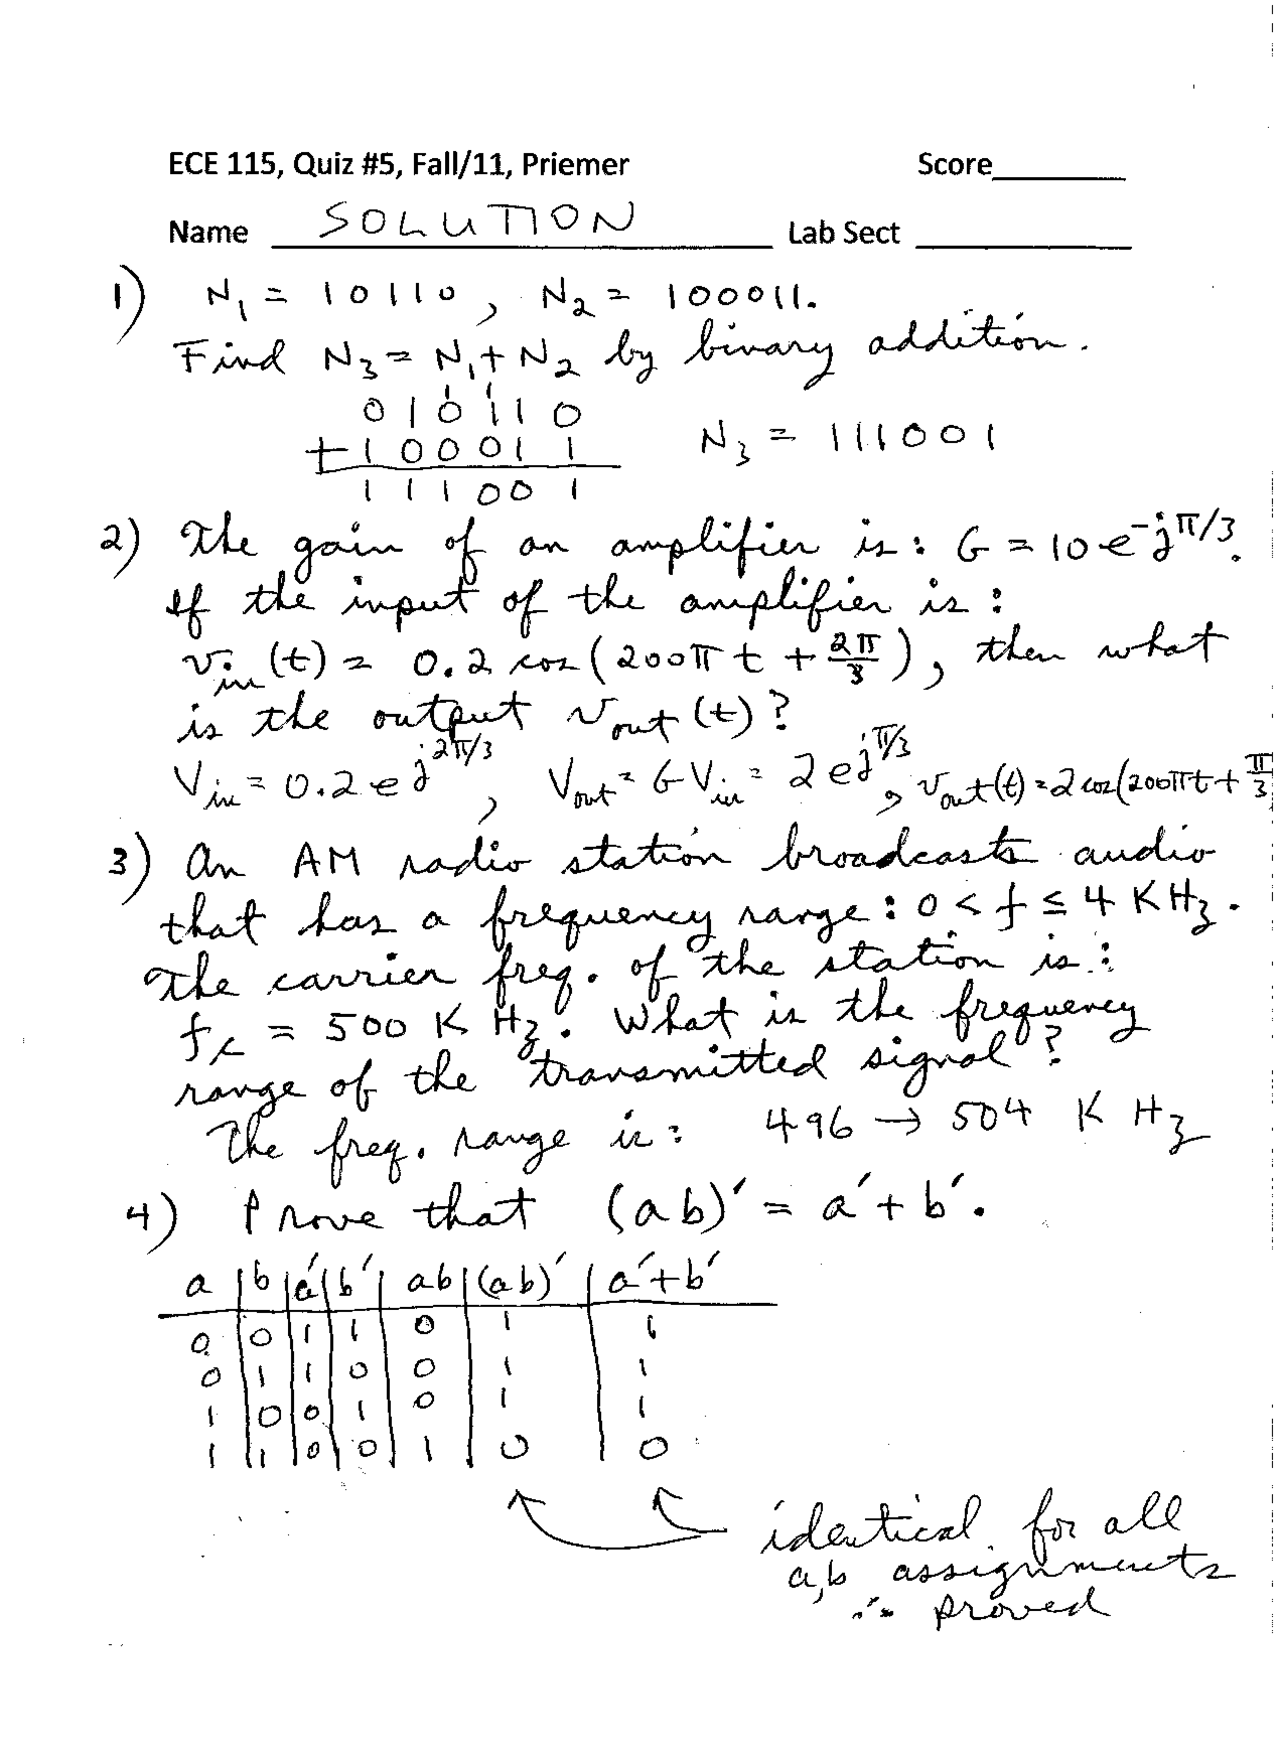 ECE 115, Quiz #5, Fall/11, Priemer Score________
Name SOLUTION Lab Sect ________
1) N₁ = 10110, N₂ = 100011.
Find N₃ = N₁ + N₂ by binary addition.
1 1
010110
+100011 N₃ = 111001
111001
2) The gain of an amplifier is: G = 10 e^-jπ/3.
If the input of the amplifier is:
v_in(t) = 0.2 cos(200π t + 2π/3), then what
is the output v_out(t)?
V_in = 0.2 e^j2π/3, V_out = G V_in = 2 e^jπ/3, v_out(t) = 2 cos(200πt + π/3
3) An AM radio station broadcasts audio
that has a frequency range: 0 < f ≤ 4 KHz.
The carrier freq. of the station is:
f_c = 500 K Hz. What is the frequency
range of the transmitted signal?
The freq. range is: 496 → 504 K Hz
4) Prove that (ab)' = a' + b'.
a | b | a' | b' | ab | (ab)' | a'+b'
0 0 1 1 0 1 1
0 1 1 0 0 1 1
1 0 0 1 0 1 1
1 1 0 0 1 0 0
identical for all
a,b assignments
∴ proved